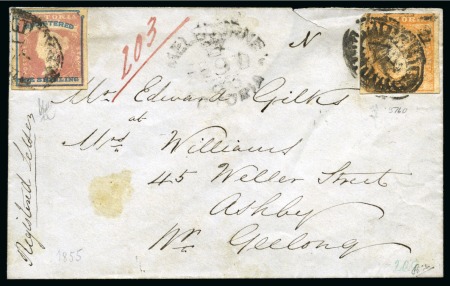 VICTORIA
REGISTERED
203
MELBOURNE
N
VICTORIA
Mr Edward Gilks
at
Mrs Williams
45 Weller Street
Ashby
Nr Geelong
Registered Letter
1855
5760